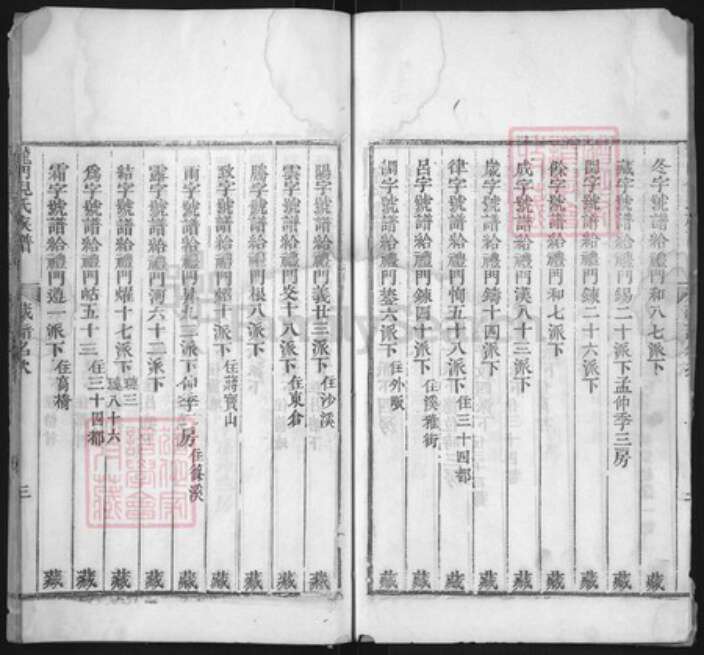 冬字號譜給禮門和八七派下 藏
藏字號譜給禮門錫二十派下孟仲季三房 藏
閏字號譜給禮門鍊二十六派下 藏
餘字號譜給禮門和七派下 藏
成字號譜給禮門漢八十三派下 藏
歲字號譜給禮門鑄十四派下 藏
律字號譜給禮門恂五十八派下住三十四都 藏
呂字號譜給禮門鍊四十派下住溪雅街 藏
調字號譜給禮門 六派下住外 藏
陽字號譜給禮門義廿三派下住沙溪 藏
雲字號譜給禮門 十八派下住東倉 藏
騰字號譜給禮門根八派下 藏
致字號譜給禮門 十派下住蔣寶山 藏
雨字號譜給禮門 九三派下仲季二房住篠溪 藏
露字號譜給禮門河六十二派下 藏
結字號譜給禮門燿十七派下 三 八十六 藏
為字號譜給禮門岵五十三住三十四都 藏
霜字號譜給禮門遵一派下住高橋 藏
氏族譜 領譜名次 三